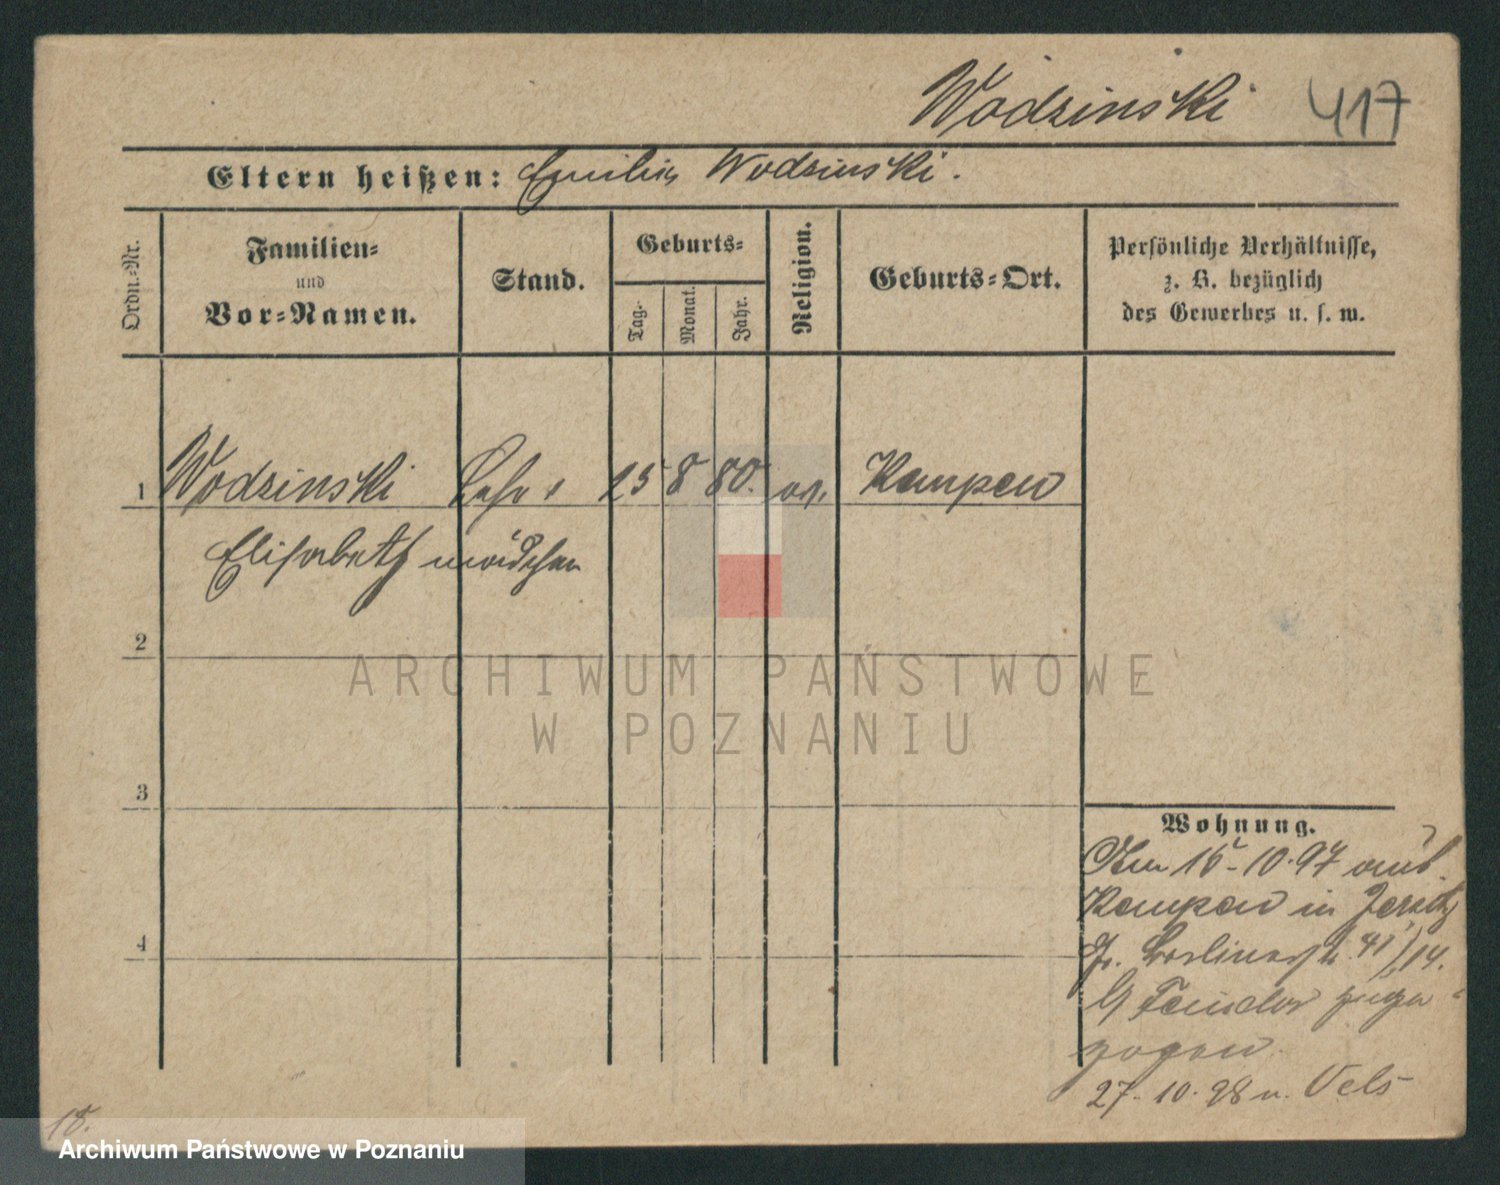 Wodzinski 417
Eltern heißen: Emilie Wodzinski.
Ordn.-Nr.
Familien-
und
Vor-Namen.
Stand.
Geburts-
Tag.
Monat.
Jahr.
Religion.
Geburts-Ort.
Persönliche Verhältnisse,
z. B. bezüglich
des Gewerbes u. s. w.
1 Wodzinski Lehr- 25 8 80. ev. Kempen
Elisabeth mädchen
2
ARCHIWUM PAŃSTWOWE
W POZNANIU
3
Wohnung.
Am 15-10.97 aus
Kempen in Jersitz
Gr. Berlinerstr. 41/14.
b/ zuge-
zogen
27.10.98 n. Oels
18.
Archiwum Państwowe w Poznaniu